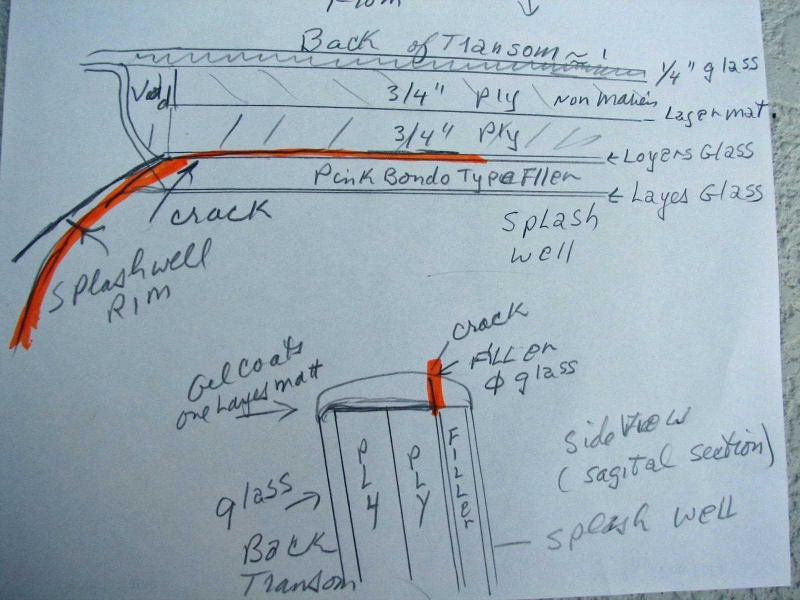 From
Back of Transom
1/4" glass
Void
3/4" Ply Non Marine
Layer mat
3/4" Ply
Layers Glass
Pink Bondo Type Filler
Layes Glass
crack
Splash
well
Splashwell
Rim
crack
Filler
& glass
Gel coats
one Layes matt
Side View
(sagital section)
PLY
PLY
FILLER
glass
Back
Transom
Splash well